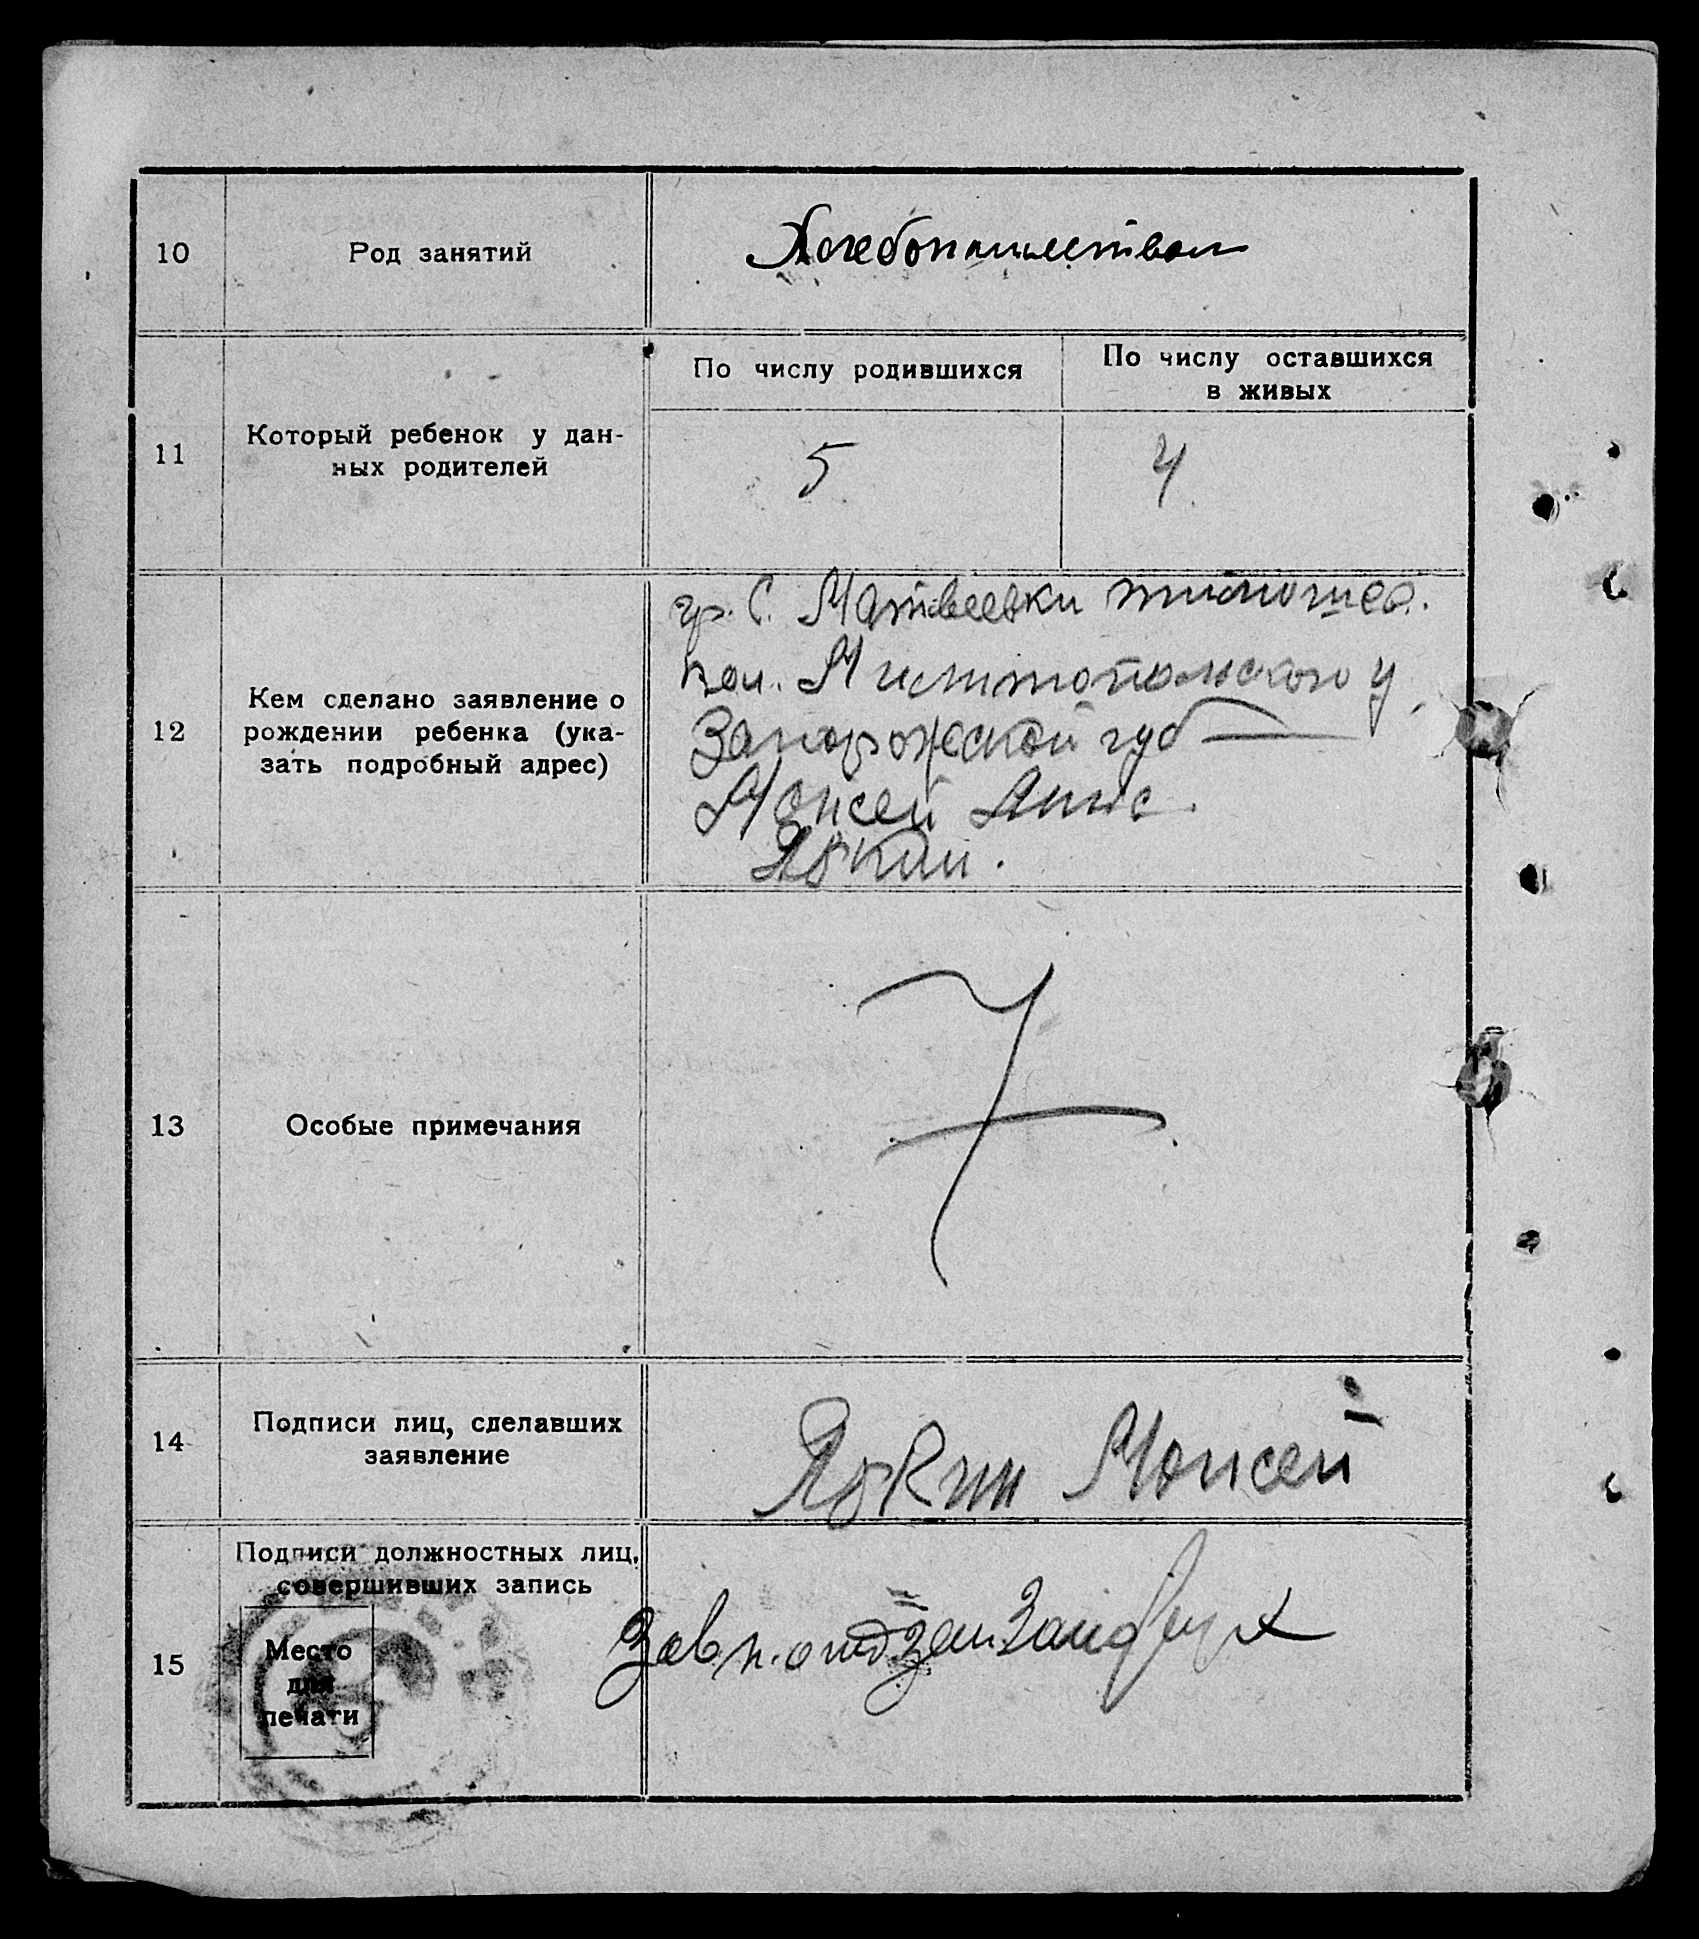 10
Род занятий
Хлебопашеством
11
Который ребенок у дан-
ных родителей
По числу родившихся
По числу оставшихся
в живых
5
4
12
Кем сделано заявление о
рождении ребенка (ука-
зать подробный адрес)
гр. С. Матвеевки
Мелитопольского у.
Запорожской губ
Моисей
Явкин.
13
Особые примечания
14
Подписи лиц, сделавших
заявление
Явкин Моисей
15
Подписи должностных лиц,
совершивших запись
Место
для
печати
Зав.